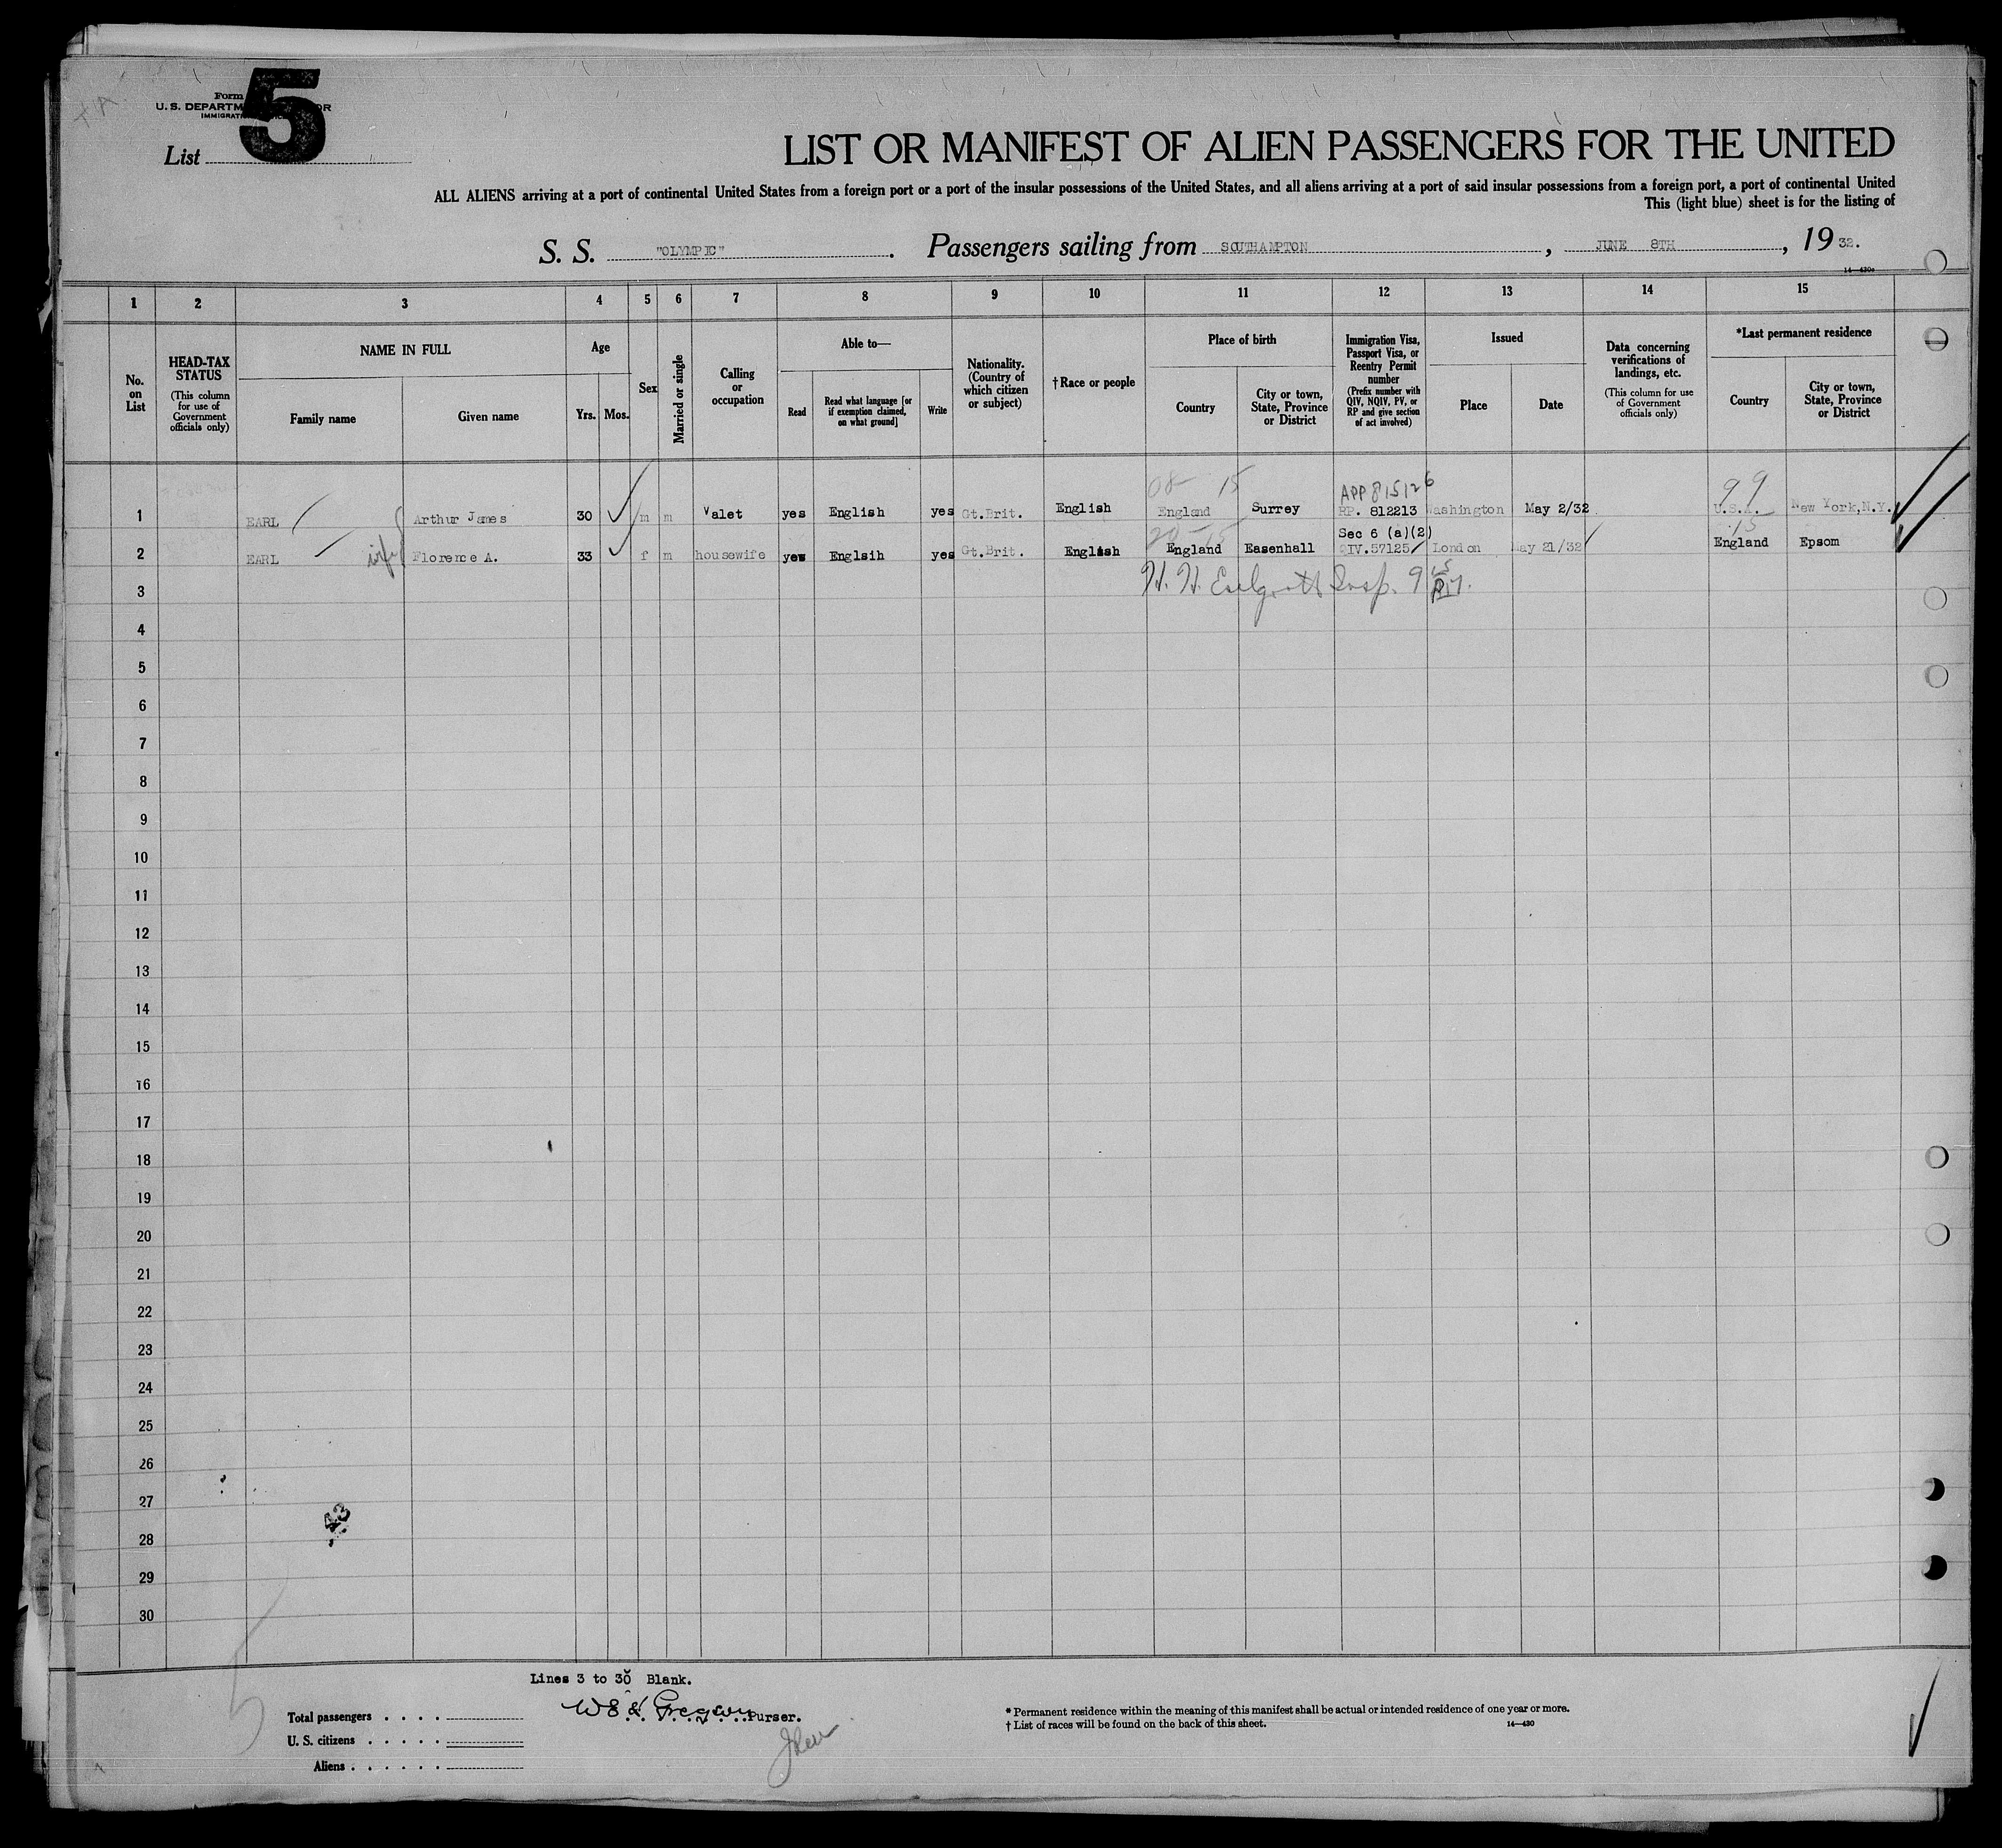 Form
U. S. DEPARTM OR
IMMIGRAT
5
List
LIST OR MANIFEST OF ALIEN PASSENGERS FOR THE UNITED
ALL ALIENS arriving at a port of continental United States from a foreign port or a port of the insular possessions of the United States, and all aliens arriving at a port of said insular possessions from a foreign port, a port of continental United
This (light blue) sheet is for the listing of
S. S. "OLYMPIC". Passengers sailing from SOUTHAMPTON, JUNE 8TH, 1932.
14—430a
1 2 3 4 5 6 7 8 9 10 11 12 13 14 15
No. on List
HEAD-TAX STATUS
(This column for use of Government officials only)
NAME IN FULL
Family name
Given name
Age
Yrs. Mos.
Sex
Married or single
Calling or occupation
Able to—
Read
Read what language [or if exemption claimed, on what ground]
Write
Nationality. (Country of which citizen or subject)
†Race or people
Place of birth
Country
City or town, State, Province or District
Immigration Visa, Passport Visa, or Reentry Permit number
(Prefix number with QIV, NQIV, PV, or RP and give section of act involved)
Issued
Place
Date
Data concerning verifications of landings, etc.
(This column for use of Government officials only)
*Last permanent residence
Country
City or town, State, Province or District
08 15 APP 815126 99
1 EARL Arthur James 30 m m Valet yes English yes Gt.Brit. English England Surrey RP. 812213 Washington May 2/32 U.S.A. New York,N.Y.
20 15 Sec 6 (a)(2) 15
2 EARL wife Florence A. 33 f m housewife yes Englsih yes Gt.Brit. English England Easenhall QIV.57125 London May 21/32 England Epsom
3 H. H. Insp. 9
4
5
6
7
8
9
10
11
12
13
14
15
16
17
18
19
20
21
22
23
24
25
26
27
28
29
30
43
5
Lines 3 to 30 Blank.
Total passengers . . . .
U. S. citizens . . . . .
Aliens . . . . . .
Gregory Purser.
* Permanent residence within the meaning of this manifest shall be actual or intended residence of one year or more.
† List of races will be found on the back of this sheet.
14—430